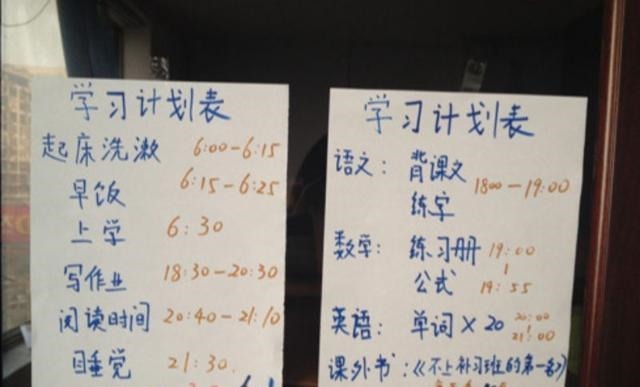 学习计划表
起床洗漱 6:00-6:15
早饭 6:15-6:25
上学 6:30
写作业 18:30-20:30
阅读时间 20:40-21:10
睡觉 21:30
学习计划表
语文: 背课文
练字 1800-19:00
数学: 练习册 19:00
公式 19:55
英语: 单词×20 20:00
21:00
课外书:《不上补习班的第一名》